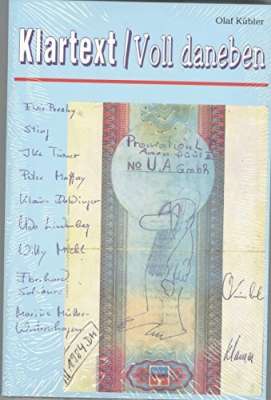 Olaf Kübler
Klartext / Voll daneben
Elvis Presley
Sting
Ike Turner
Peter Maffay
Klaus Doldinger
Udo Lindenberg
Willy Michl
Eberhard
Schoener
Marius Müller-
Westernhagen
Promotional
No U.A. GmbH
1984 DM